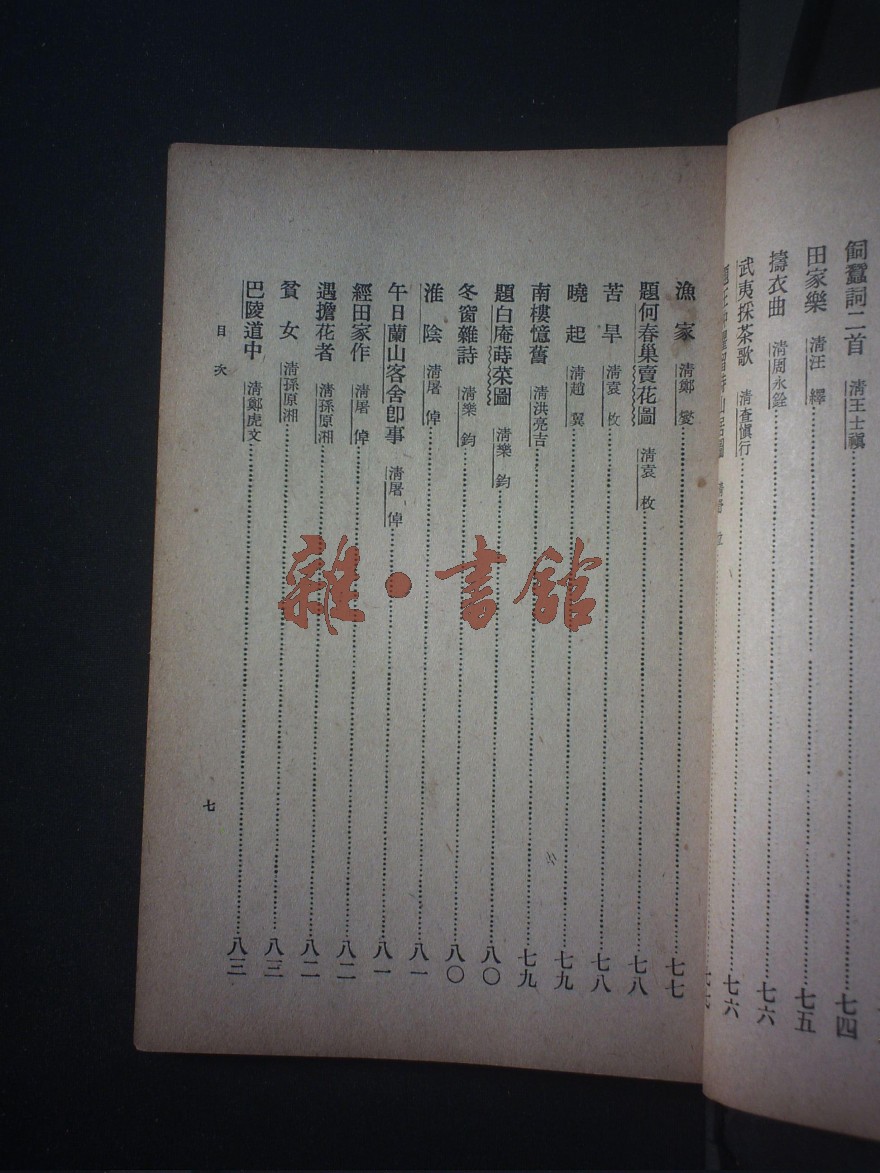 飼蠶詞二首 清王士禛……七四
田家樂 清汪 繹……七五
擣衣曲 清周永銓……七六
武夷採茶歌 清查慎行……七六
漁家 清鄭 燮……七七
題何春巢賣花圖 清袁 枚……七八
苦旱 清袁 枚……七八
曉起 清趙 翼……七九
南樓憶舊 清洪亮吉……七九
題白庵蒔菜圖 清樂 鈞……八〇
冬窗雜詩 清樂 鈞……八〇
淮陰 清屠 倬……八一
午日蘭山客舍卽事 清屠 倬……八一
經田家作 清屠 倬……八二
遇擔花者 清孫原湘……八二
貧女 清孫原湘……八三
巴陵道中 清鄭虎文……八三
目次
七
雜·書館